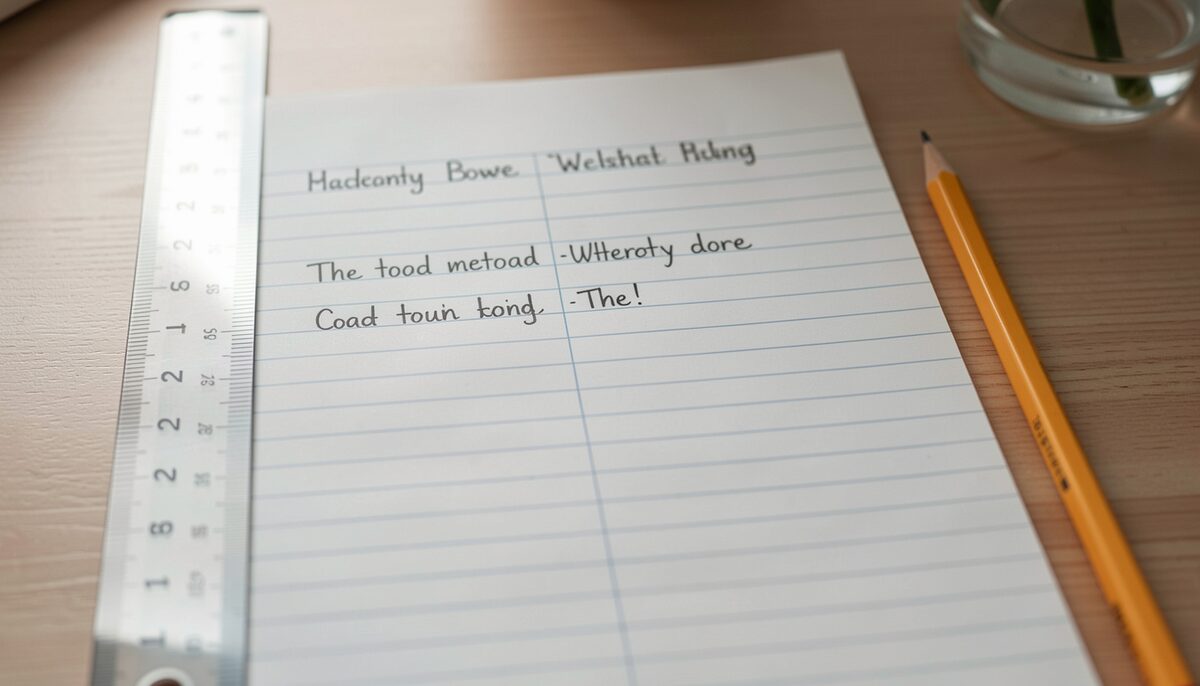 Hadeanty Bowe "Welshat Rdng
The tood metoad -WHteroty dore
Coad touin kong, -The!